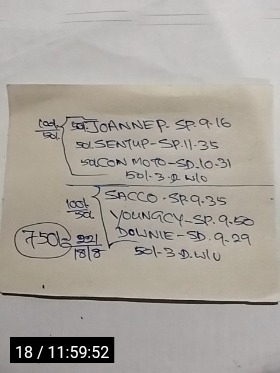 100/- 50/- JOANNEP - SP. 9.16
50/- 50/- SENTUP - SP. 11.35
50/- CON MOTO - SD. 10.31
50/- 3. D. W/O
SACCO - SP. 9.35
100/- 50/- YOUNGCY - SP. 9.50
DOWNIE - SD. 9.29
750/-
18/8 50/- 3. D. W/O
18 / 11:59:52